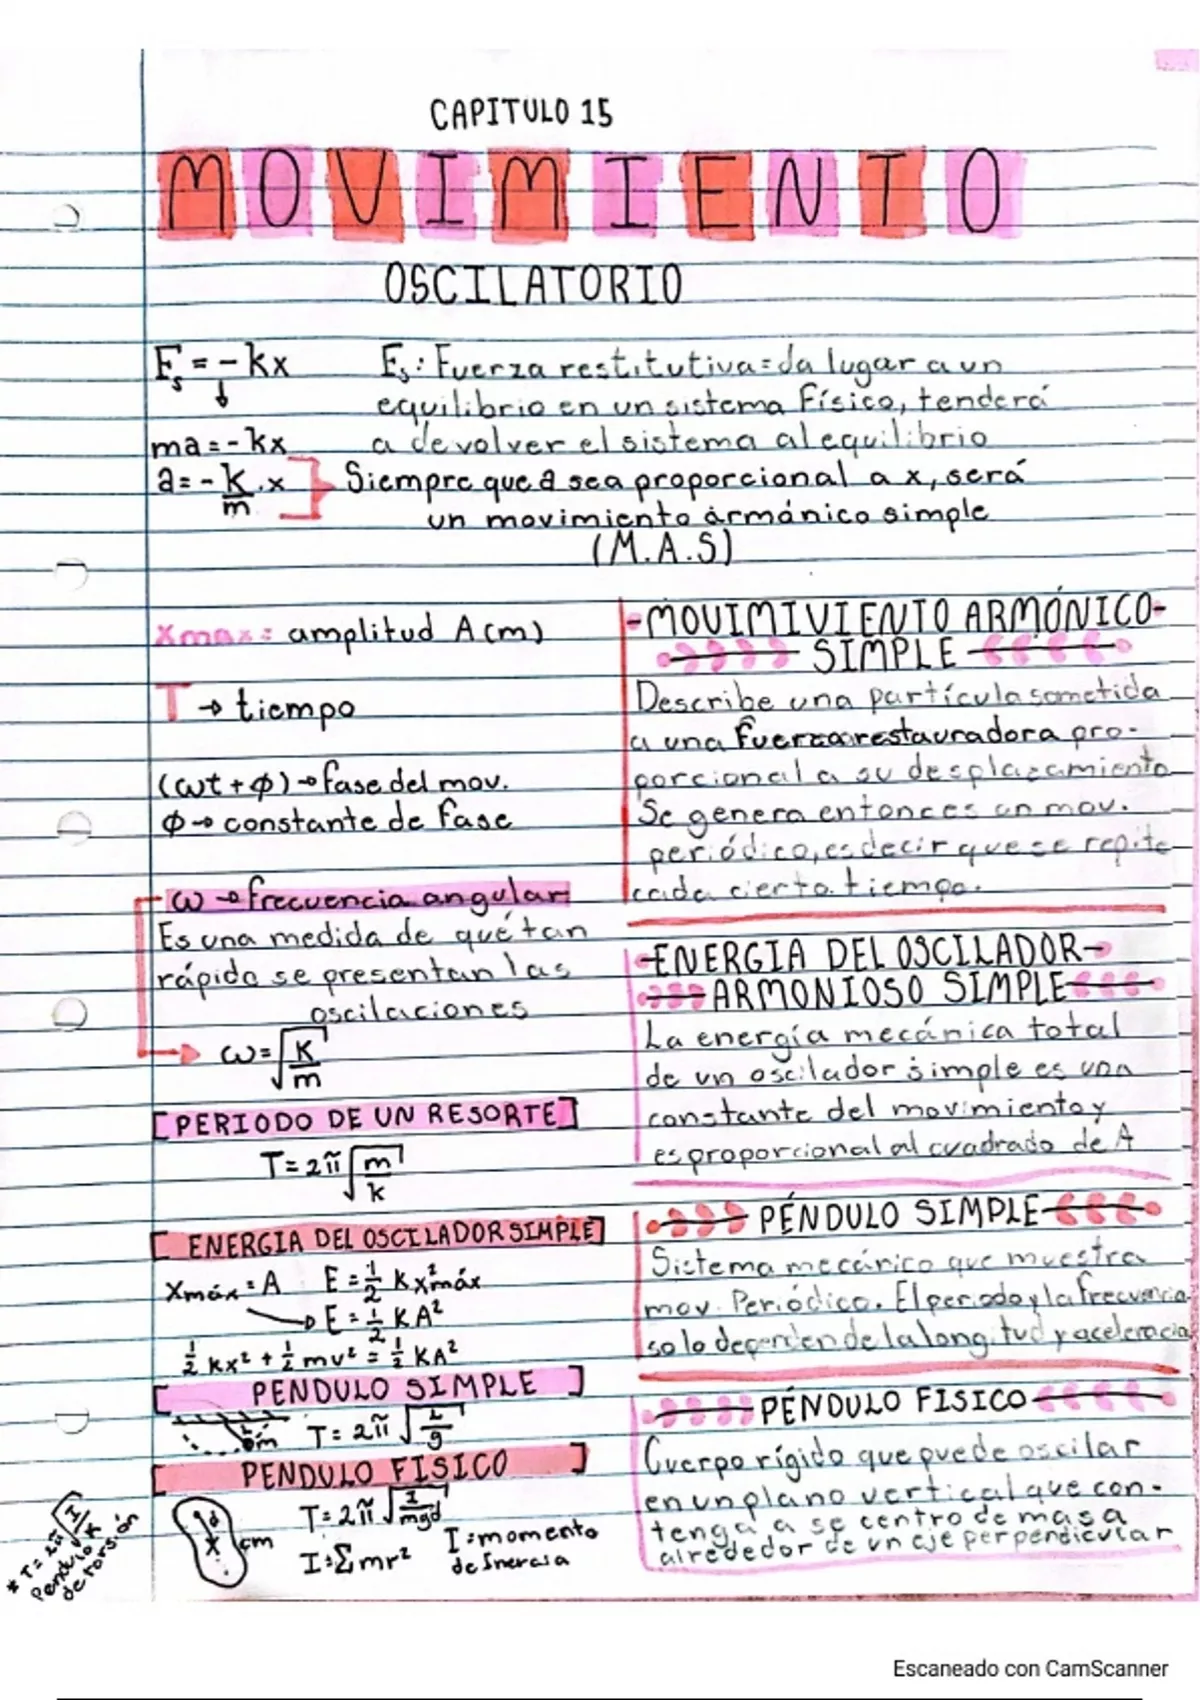 CAPITULO 15
MOVIMIENTO
OSCILATORIO
Fs = -kx
Fs: Fuerza restitutiva = da lugar a un
equilibrio en un sistema Físico, tenderá
a devolver el sistema al equilibrio
ma = -kx
a = - k/m . x
Siempre que a sea proporcional a x, será
un movimiento armónico simple
(M.A.S)
Xmax: amplitud A (m)
T → tiempo
(ωt + φ) → fase del mov.
φ → constante de fase
ω → frecuencia angular
Es una medida de qué tan
rápido se presentan las
oscilaciones
ω = √k/m
[PERIODO DE UN RESORTE]
T = 2π √m/k
[ENERGIA DEL OSCILADOR SIMPLE]
Xmáx = A E = 1/2 K x²máx
→ E = 1/2 KA²
1/2 kx² + 1/2 mv² = 1/2 KA²
[PENDULO SIMPLE]
L
m
T = 2π √L/g
[PENDULO FISICO]
d
x
cm
T = 2π √I/mgd
I = Σmr²
I = momento
de Inercia
* T = 2π √I/K
Pendulo
de torsión
-MOVIMIVIENTO ARMÓNICO-
SIMPLE
Describe una partícula sometida
a una fuerza restauradora pro-
porcional a su desplazamiento
Se genera entonces un mov.
periódico, es decir que se repite
cada cierto tiempo.
-ENERGIA DEL OSCILADOR-
ARMONIOSO SIMPLE
La energía mecánica total
de un oscilador simple es una
constante del movimiento y
es proporcional al cuadrado de A
PÉNDULO SIMPLE
Sistema mecánico que muestra
mov. Periódico. El periodo y la frecuencia
solo dependen de la longitud y aceleracia
PÉNDULO FISICO
Cuerpo rígido que puede oscilar
en un plano vertical que con-
tenga a se centro de masa
alrededor de un eje perpendicular
Escaneado con CamScanner